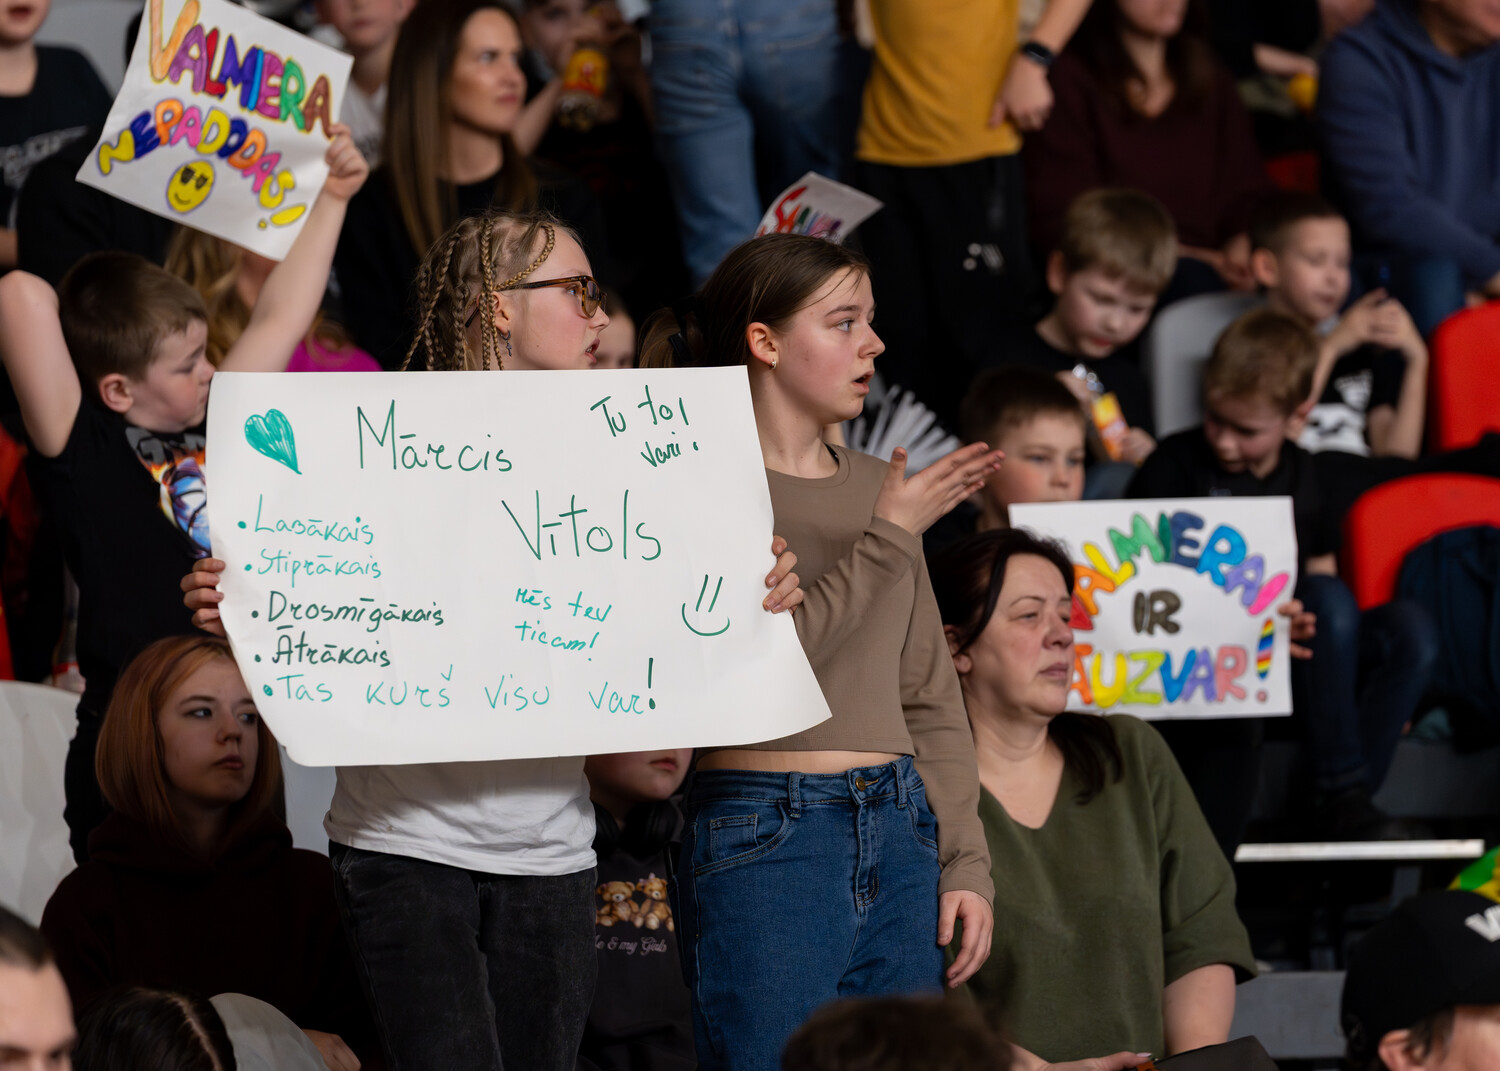 VALMIERA
NEPADODAS!
Mārcis
Vītols
Tu to!
vari!
• Labākais
• Stiprākais
• Drosmīgākais
• Ātrākais
• Tas kurš visu var!
mēs tev
ticam!
VALMIERAI
IR
JAUZVAR!
& my Girls